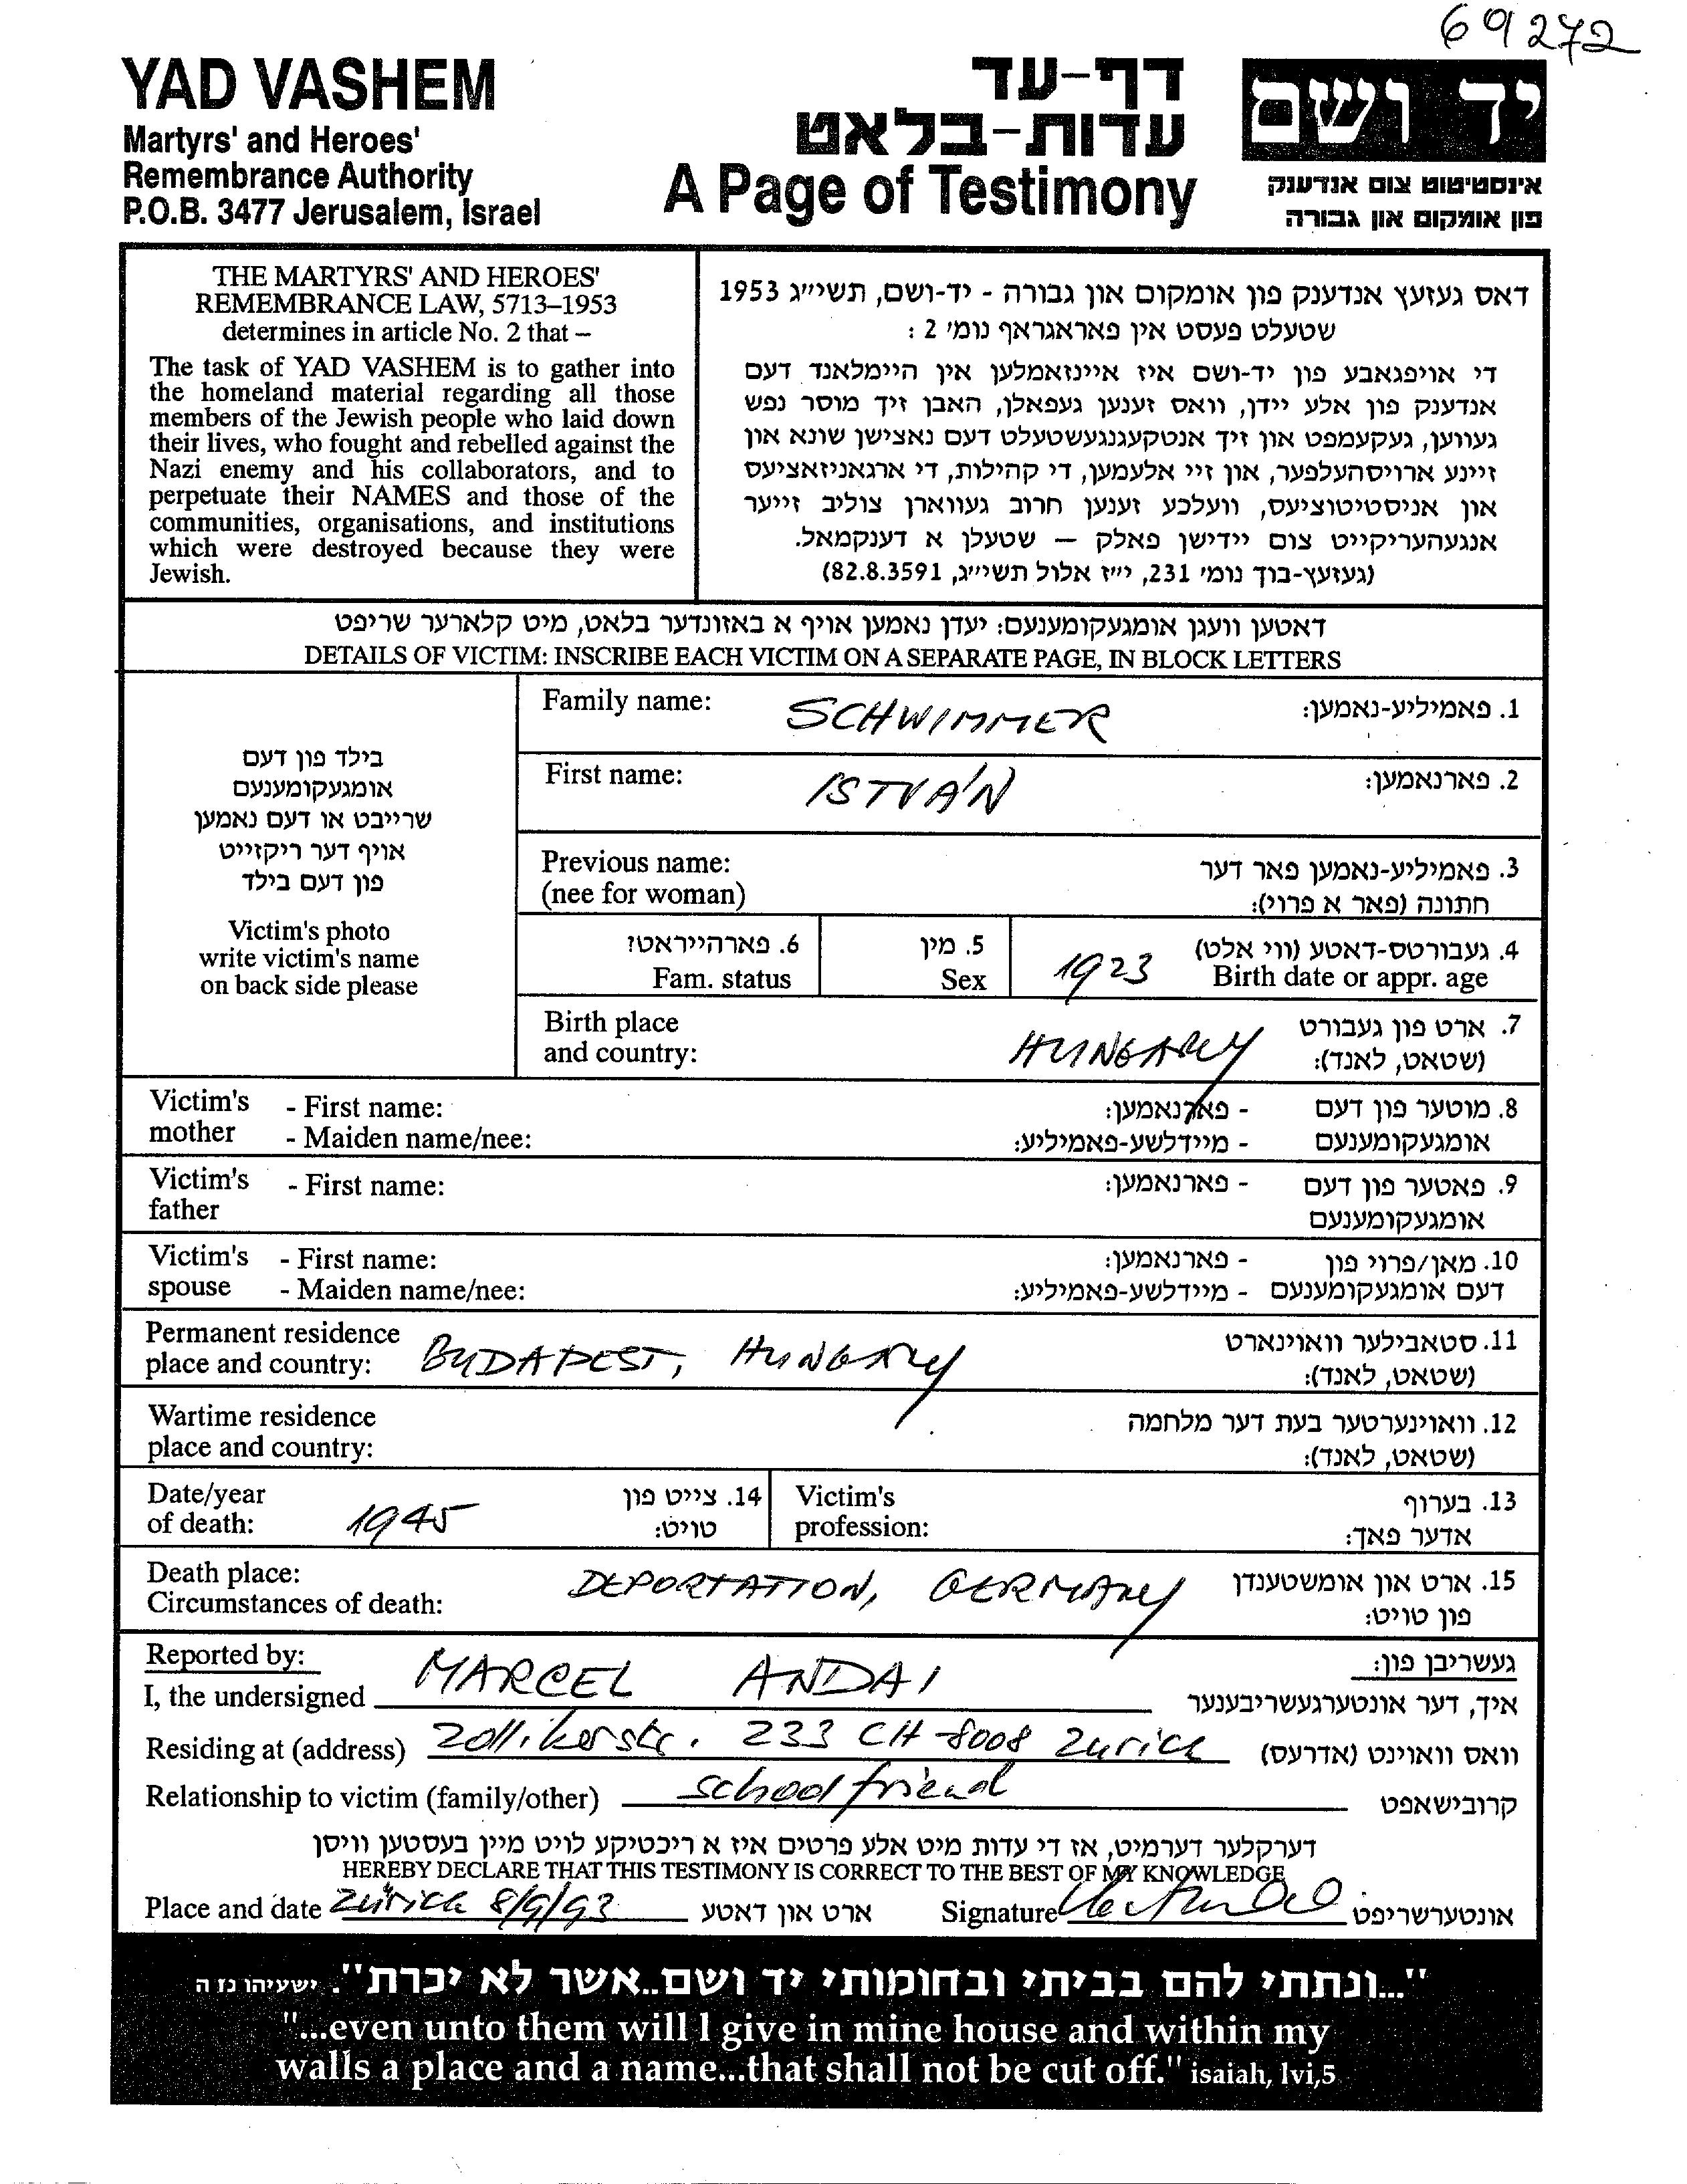 69272
YAD VASHEM
Martyrs' and Heroes'
Remembrance Authority
P.O.B. 3477 Jerusalem, Israel
דף-עד
עדות-בלאט
A Page of Testimony
יד ושם
אינסטיטוט צום אנדענק
פון אומקום און גבורה
THE MARTYRS' AND HEROES'
REMEMBRANCE LAW, 5713–1953
determines in article No. 2 that –
The task of YAD VASHEM is to gather into
the homeland material regarding all those
members of the Jewish people who laid down
their lives, who fought and rebelled against the
Nazi enemy and his collaborators, and to
perpetuate their NAMES and those of the
communities, organisations, and institutions
which were destroyed because they were
Jewish.
דאס געזעץ אנדענק פון אומקום און גבורה - יד-ושם, תשי״ג 1953
שטעלט פעסט אין פאראגראף נומ׳ 2 :
די אויפגאבע פון יד-ושם איז איינזאמלען אין היימלאנד דעם
אנדענק פון אלע יידן, וואס זענען געפאלן, האבן זיך מוסר נפש
געווען, געקעמפט און זיך אנטקעגנגעשטעלט דעם נאצישן שונא און
זיינע ארויסהעלפער, און זיי אלעמען, די קהילות, די ארגאניזאציעס
און אניסטיטוציעס, וועלכע זענען חרוב געווארן צוליב זייער
אנגעהעריקייט צום יידישן פאלק – שטעלן א דענקמאל.
(געזעץ-בוך נומ׳ 231, י״ז אלול תשי״ג, 82.8.3591)
דאטען וועגן אומגעקומענעם: יעדן נאמען אויף א באזונדער בלאט, מיט קלארער שריפט
DETAILS OF VICTIM: INSCRIBE EACH VICTIM ON A SEPARATE PAGE, IN BLOCK LETTERS
בילד פון דעם
אומגעקומענעם
שרייבט או דעם נאמען
אויף דער ריקזייט
פון דעם בילד
Victim's photo
write victim's name
on back side please
Family name: SCHWIMMER 1. פאמיליע-נאמען:
First name: ISTVÁN 2. פארנאמען:
Previous name: 3. פאמיליע-נאמען פאר דער
(nee for woman) חתונה (פאר א פרוי):
6. פארהייראטט? 5. מין 4. געבורטס-דאטע (ווי אלט)
Fam. status Sex 1923 Birth date or appr. age
Birth place 7. ארט פון געבורט
and country: HUNGARY (שטאט, לאנד):
Victim's - First name: - פארנאמען: 8. מוטער פון דעם
mother - Maiden name/nee: - מיידלשע-פאמיליע: אומגעקומענעם
Victim's - First name: - פארנאמען: 9. פאטער פון דעם
father אומגעקומענעם
Victim's - First name: - פארנאמען: 10. מאן/פרוי פון
spouse - Maiden name/nee: - מיידלשע-פאמיליע: דעם אומגעקומענעם
Permanent residence 11. סטאבילער וואוינארט
place and country: BUDAPEST, HUNGARY (שטאט, לאנד):
Wartime residence 12. וואוינערטער בעת דער מלחמה
place and country: (שטאט, לאנד):
Date/year 14. צייט פון Victim's 13. בערוף
of death: 1945 טויט: profession: אדער פאך:
Death place: 15. ארט און אומשטענדן
Circumstances of death: DEPORTATION, GERMANY פון טויט:
Reported by: געשריבן פון:
I, the undersigned MARCEL ANDAI איך, דער אונטערגעשריבענער
Residing at (address) Zollikerstr. 233 CH-8008 Zurich וואס וואוינט (אדרעס)
Relationship to victim (family/other) school friend קרובישאפט
דערקלער דערמיט, אז די עדות מיט אלע פרטים איז א ריכטיקע לויט מיין בעסטען וויסן
HEREBY DECLARE THAT THIS TESTIMONY IS CORRECT TO THE BEST OF MY KNOWLEDGE
Place and date Zürich 8/9/93 ארט און דאטע Signature אונטערשריפט
"...ונתתי להם בביתי ובחומותי יד ושם..אשר לא יכרת". ישעיהו נז ה
"...even unto them will I give in mine house and within my
walls a place and a name...that shall not be cut off." isaiah, lvi,5